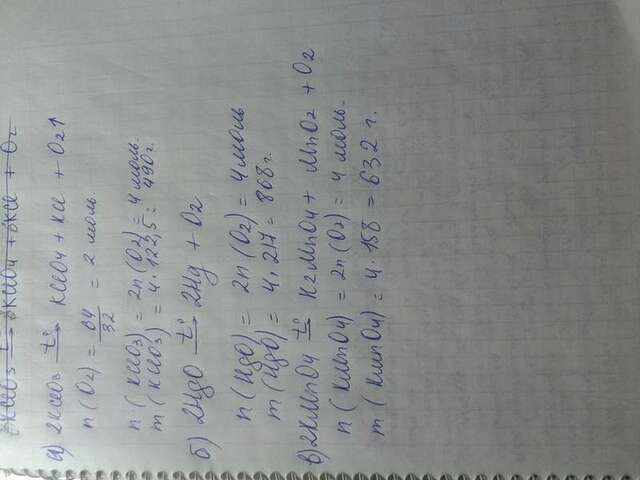 2KClO3 t° KClO4 + KCl + O2
а) 2KClO3 t° KClO4 + KCl + O2↑
n(O2) = 64/32 = 2 моль.
n(KClO3) = 2n(O2) = 4 моль.
m(KClO3) = 4 · 122,5 = 490 г.
б) 2HgO t° 2Hg + O2
n(HgO) = 2n(O2) = 4 моль
m(HgO) = 4 · 217 = 868 г.
в) 2KMnO4 t° K2MnO4 + MnO2 + O2
n(KMnO4) = 2n(O2) = 4 моль.
m(KMnO4) = 4 · 158 = 632 г.